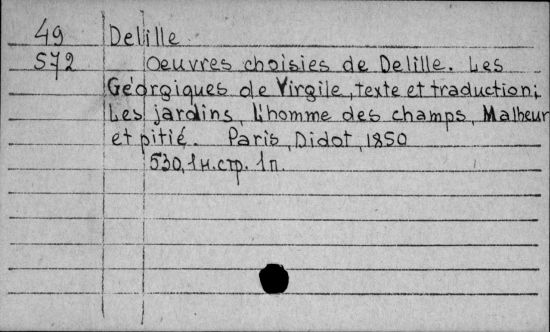 49 Delille
572 Oeuvres choisies de Delille. Les
Géorgiques de Virgile, texte et traduction;
Les jardins, L'homme des champs, Malheur
et pitié. Paris, Didot, 1850
530, 1 н.стр. 1 п.